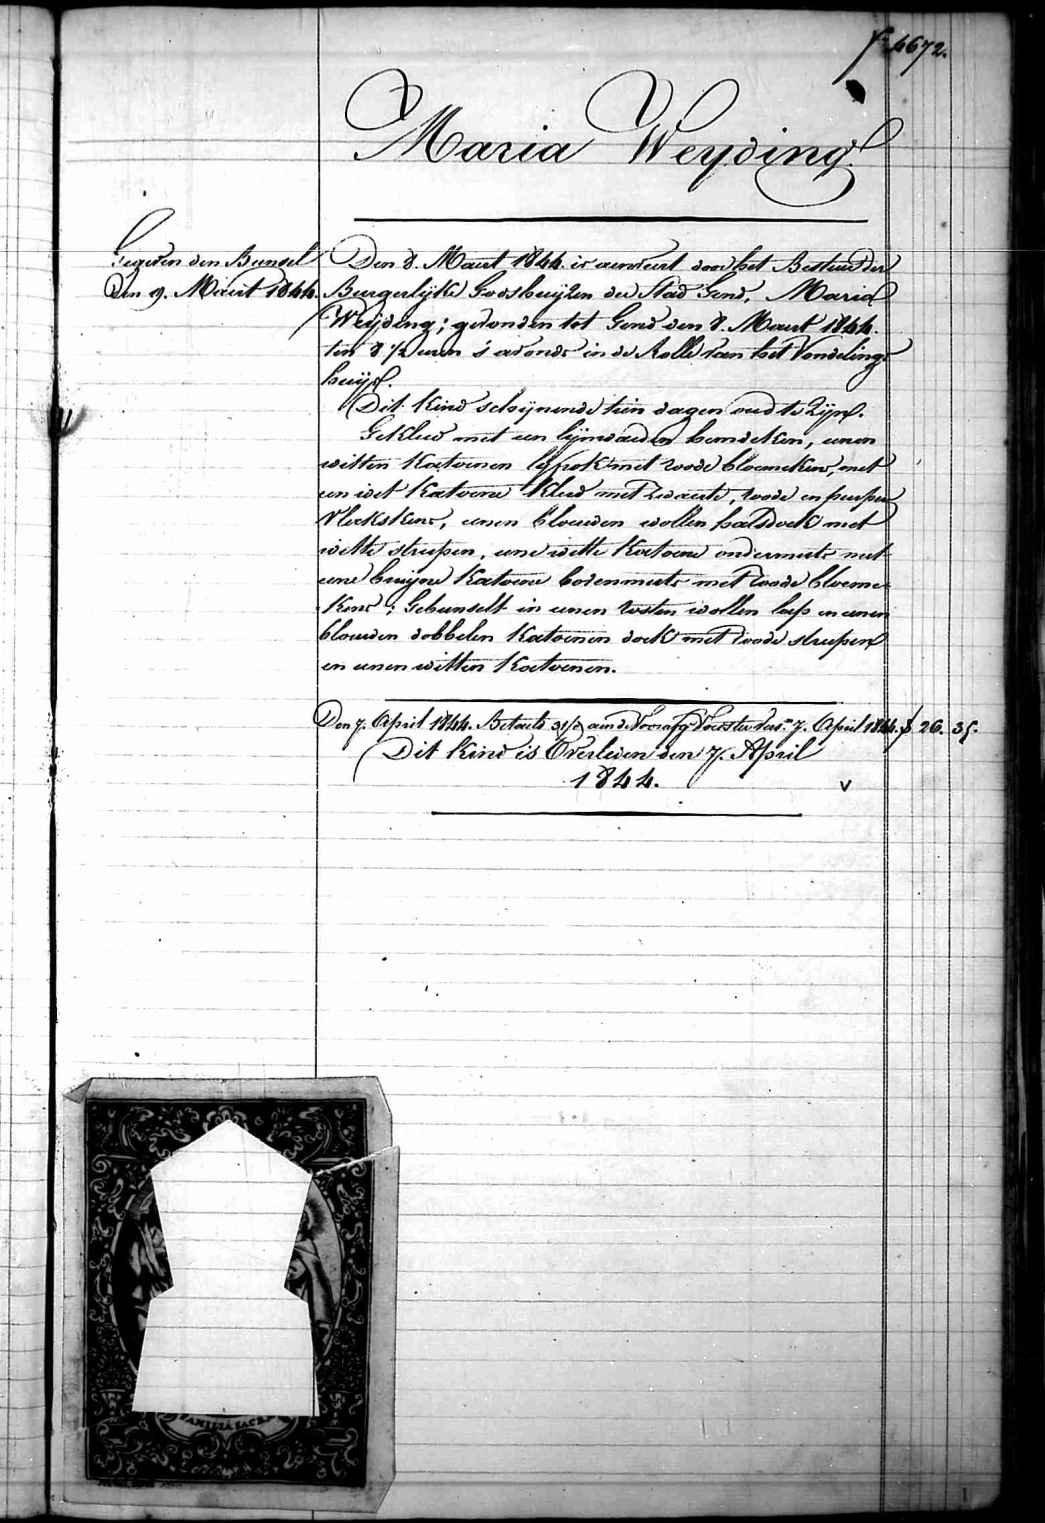 fº 4672.
Maria Weyding.
Gegeven den Bunsel
den 9. Maart 1844.
Den 8. Maart 1844. is aenveert door het Bestuur der
Burgerlijke Godshuijzen der Stad Gend, Maria
Weijding; gevonden tot Gend den 8. Maart 1844.
ten 8 1/2 uren 's avonds in de Rolle van het Vondelings
huijs.
Dit kind schijnende tien dagen oud te zijn.
Gekleed met een lijnwaeden hemdeken, eenen
witten katoenen met roode bloemekens, met
een wit katoene kleed met zwarte, roode en purper
vlekskens, eenen blouwen wollen halsdoek met
witte streepen, eene witte katoene ondermuts met
eene bruijne katoene bovenmuts met roode bloeme-
kens; Gebunselt in eenen rosten wollen lap en eenen
blouwen dobbelen katoenen doek met roode streepen
en eenen witten katoenen.
Den 7. April 1844. Betaelt 31/d aen de Voorsz Voester 7. April 1844. 26. 35.
Dit kind is Overleden den 7. April
1844.
v
FAMILIA SACRA